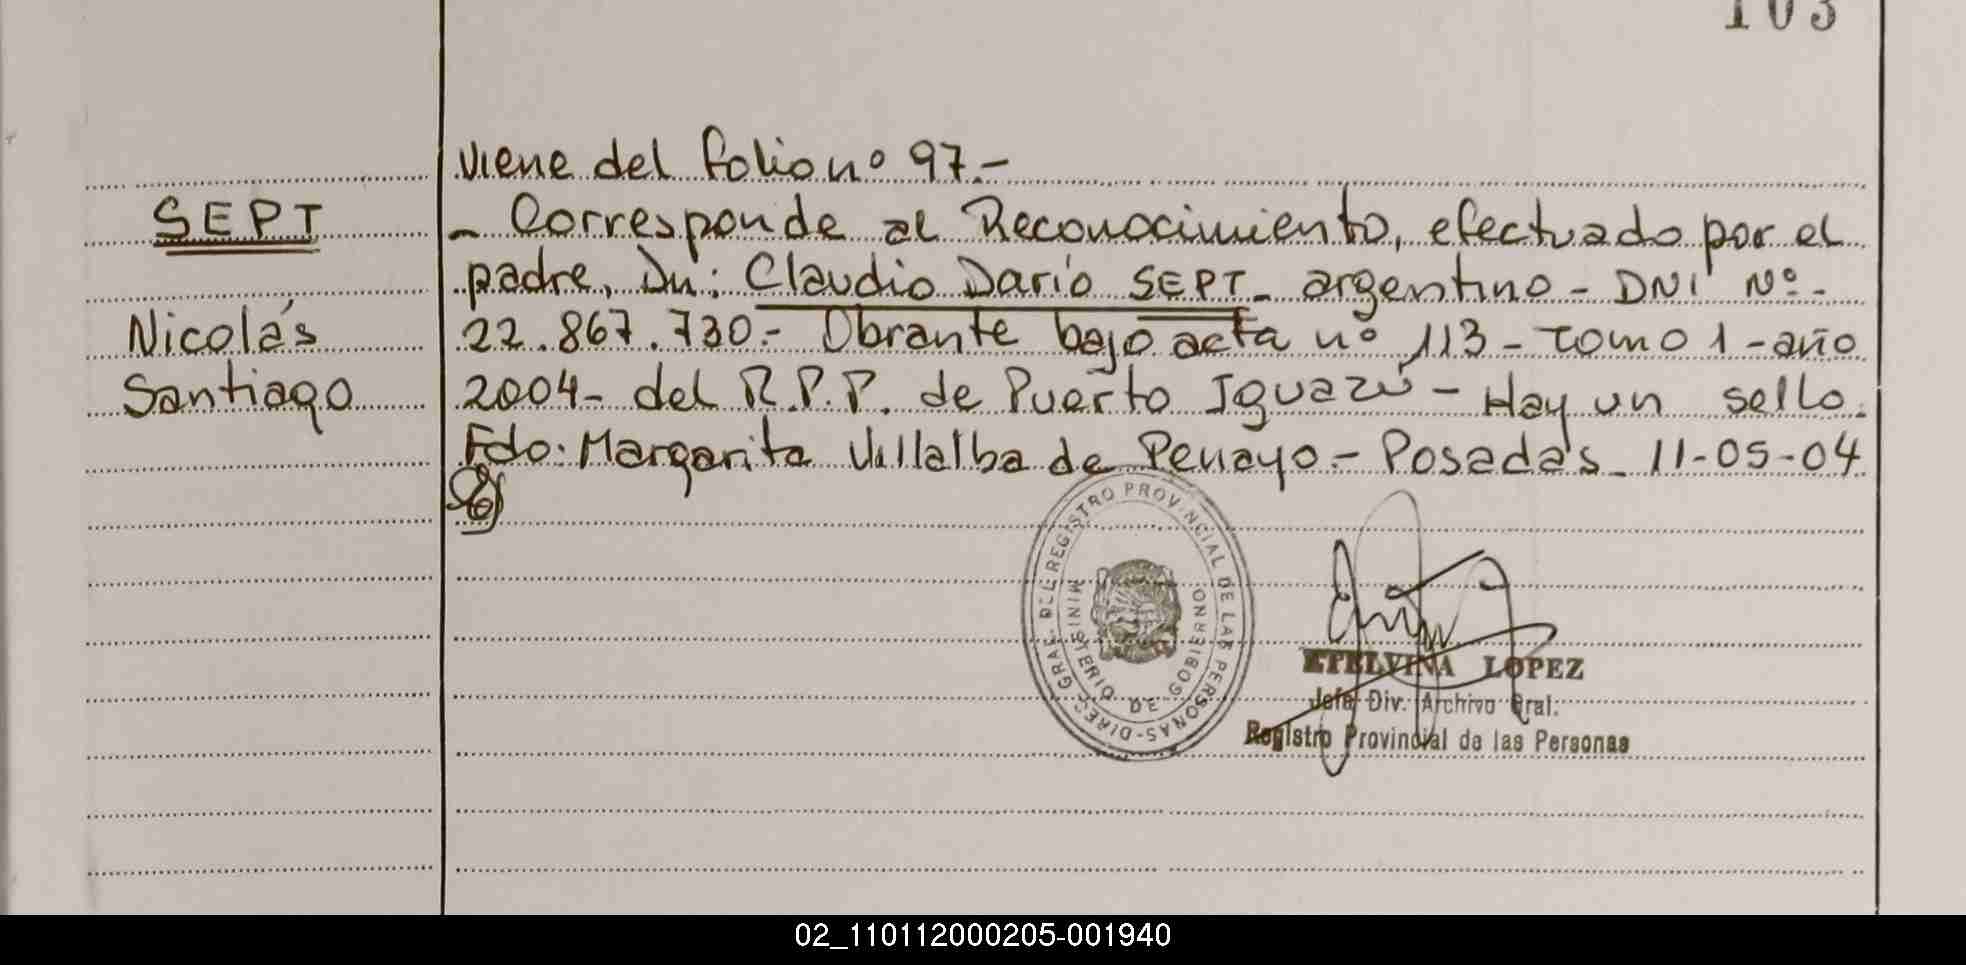 103
Viene del folio nº 97.-
SEPT
- Corresponde al Reconocimiento, efectuado por el
padre, Dn: Claudio Darío SEPT - argentino - DNI Nº -
Nicolás
22.867.730.- Obrante bajo acta nº 113 - tomo 1 - año
Santiago
2004 - del R.P.P. de Puerto Iguazú - Hay un sello.
Fdo: Margarita Villalba de Penayo.- Posadas - 11-05-04
DIREC. GRAL. DEL REGISTRO PROVINCIAL DE LAS PERSONAS-
MINISTERIO DE GOBIERNO
ETELVINA LOPEZ
Jefa Div. Archivo Gral.
Registro Provincial de las Personas
02_110112000205-001940